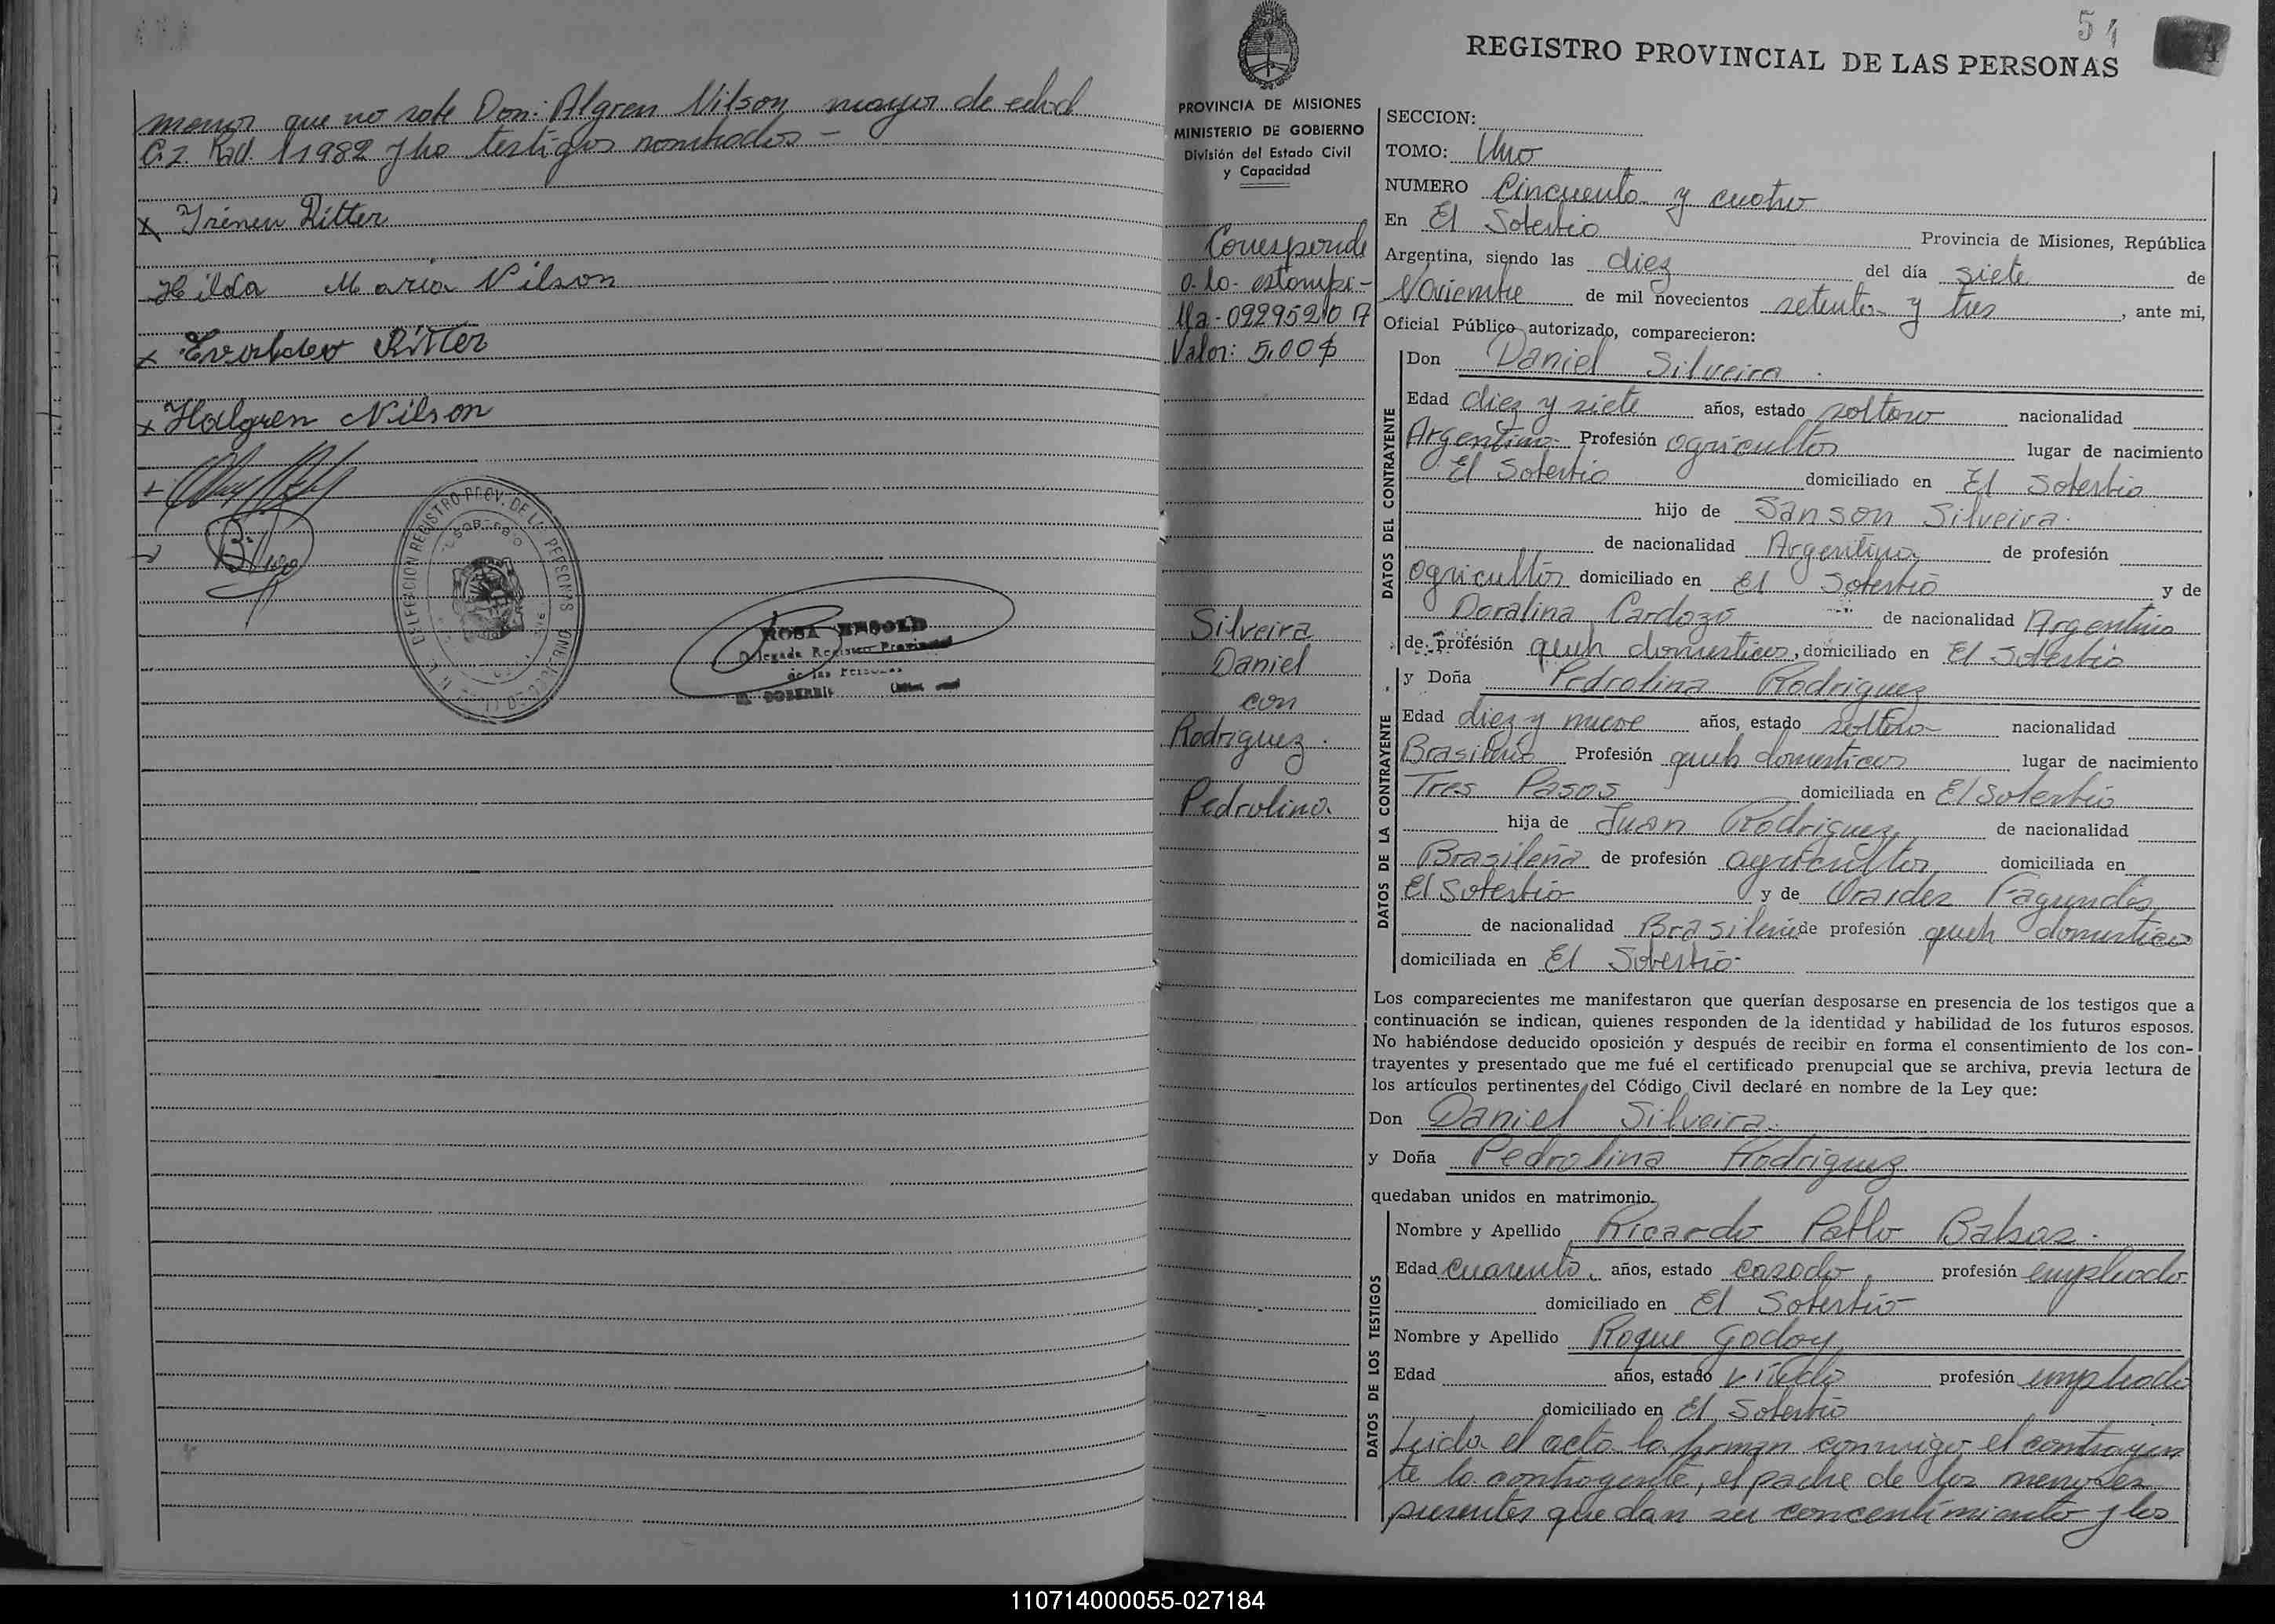 menor que no sabe Don: Algren Nilson mayor de edad
C.I. Rad 11982 y los testigos nombrados -
x Irineu Ritter
Hilda Maria Nilson
x Evaldo Ritter
x Halgren Nilson
DELEGACION REGISTRO PROV. DE L. PERSONAS
ROSA
Delegada Registro Provincial
de las Personas
EL SOBERBIO
54
REGISTRO PROVINCIAL DE LAS PERSONAS
PROVINCIA DE MISIONES
MINISTERIO DE GOBIERNO
División del Estado Civil
y Capacidad
Corresponde
a la estampi-
lla - 0929952 10 A
Valor: 5,00 $
Silveira
Daniel
con
Rodriguez
Pedrolina
SECCION:
TOMO: Uno
NUMERO Cincuenta y cuatro
En El Soberbio Provincia de Misiones, República
Argentina, siendo las diez del día siete de
Noviembre de mil novecientos setenta y tres, ante mi,
Oficial Público autorizado, comparecieron:
DATOS DEL CONTRAYENTE
Don Daniel Silveira
Edad diez y siete años, estado soltero nacionalidad
Argentina Profesión agricultor lugar de nacimiento
El Soberbio domiciliado en El Soberbio
hijo de Sanson Silveira
de nacionalidad Argentina de profesión
agricultor domiciliado en El Soberbio y de
Doralina Cardozo de nacionalidad Argentina
de profesión queh domesticos, domiciliado en El Soberbio
DATOS DE LA CONTRAYENTE
y Doña Pedrolina Rodriguez
Edad diez y nueve años, estado soltera nacionalidad
Brasileña Profesión queh domesticos lugar de nacimiento
Tres Pasos domiciliada en El Soberbio
hija de Juan Rodriguez de nacionalidad
Brasileña de profesión agricultor domiciliada en
El Soberbio y de Oraides Fagundes
de nacionalidad Brasileña de profesión queh domesticos
domiciliada en El Soberbio
Los comparecientes me manifestaron que querían desposarse en presencia de los testigos que a
continuación se indican, quienes responden de la identidad y habilidad de los futuros esposos.
No habiéndose deducido oposición y después de recibir en forma el consentimiento de los con-
trayentes y presentado que me fué el certificado prenupcial que se archiva, previa lectura de
los artículos pertinentes del Código Civil declaré en nombre de la Ley que:
Don Daniel Silveira
y Doña Pedrolina Rodriguez
quedaban unidos en matrimonio.
DATOS DE LOS TESTIGOS
Nombre y Apellido Ricardo Pablo
Edad cuarenta años, estado casado profesión empleado
domiciliado en El Soberbio
Nombre y Apellido Roque Godoy
Edad años, estado viudo profesión empleado
domiciliado en El Soberbio
Leida el acta la firman conmigo, el contrayen
te la contrayente, el padre de los menores
presentes que dan su concentimiento y los
110714000055-027184